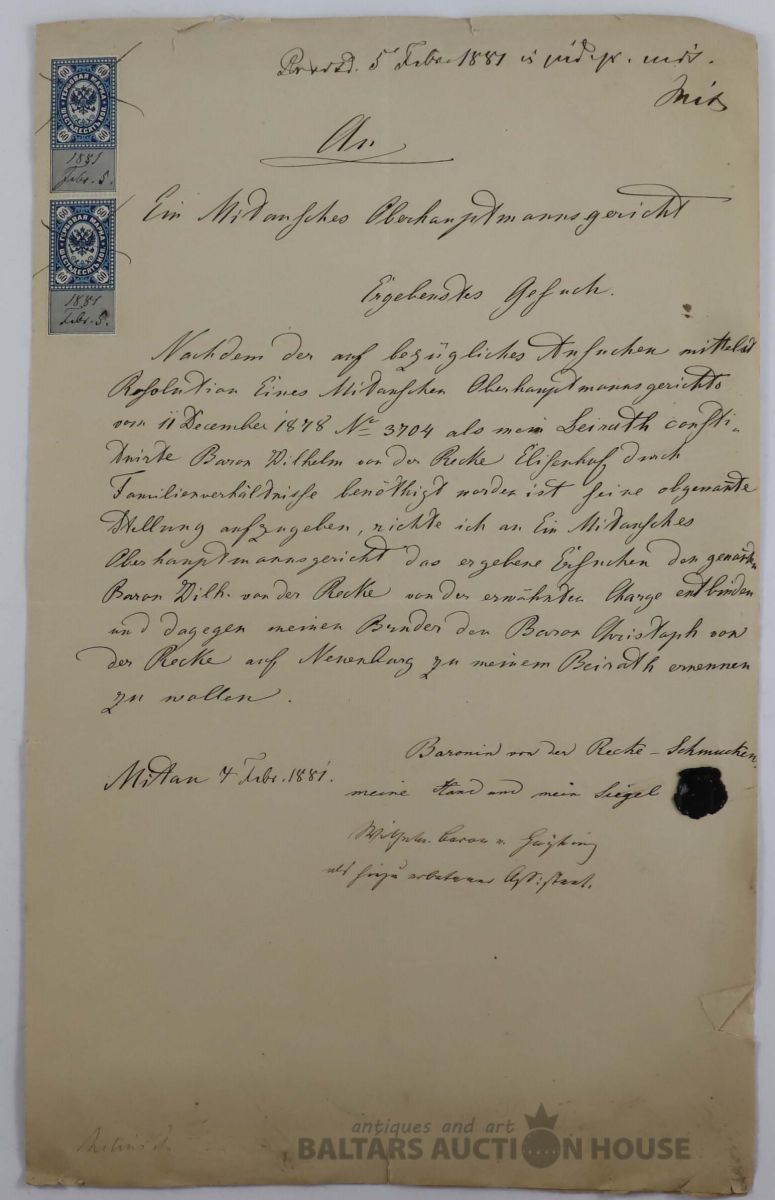 5 Febr 1881
An
Ein Mitausches Oberhauptmannsgericht
Ergebenstes Gesuch.
Nachdem der auf bezügliches Ansuchen mittelst
Resolution Eines Mitauschen Oberhauptmannsgerichts
vom 11 December 1878 No 3704 als mein Beirath consti-
tuirte Baron Wilhelm von der Recke Elisenhof durch
Familienverhältnisse benöthigt worden ist seine obgenannte
Stellung aufzugeben, richte ich an Ein Mitausches
Oberhauptmannsgericht das ergebene Ersuchen den genannten
Baron Wilh. von der Recke von der erwähnten Charge entbinden
und dagegen meinen Bruder den Baron Christoph von
der Recke auf Neuenburg zu meinem Beirath ernennen
zu wollen.
Baronin von der Recke - Schmucken.
Mitau 4 Febr. 1881.
meine Hand und mein Siegel
Wilhelm Baron v.
als hiezu erbetener Assistent.
60 60
ГЕРБОВАЯ МАРКА
ШЕСТЬДЕСЯТЬ КОП.
60 60
1881
Febr. 5.
60 60
ГЕРБОВАЯ МАРКА
ШЕСТЬДЕСЯТЬ КОП.
60 60
1881
Febr. 5.
antiques and art
BALTARS AUCTION HOUSE